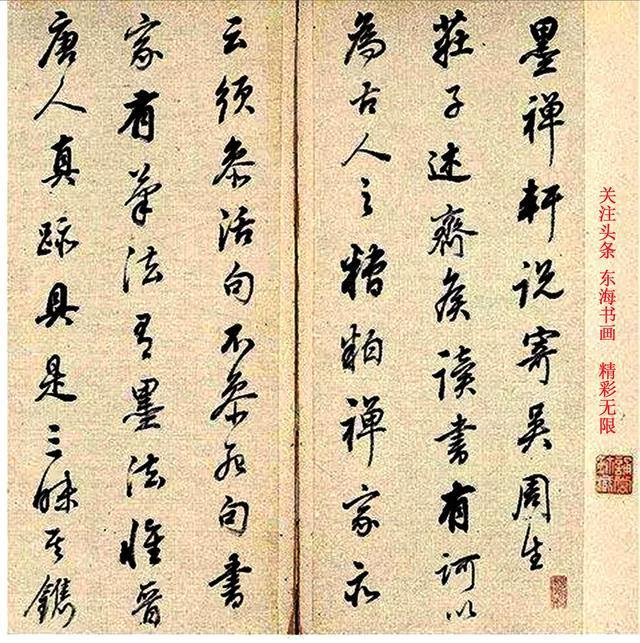 关注头条 东海书画 精彩无限
墨禅軒说寄吴周生
莊子述齊侯读書有訶以
為古人之糟粕禅家亦
云须参活句不参死句書
家有筆法有墨法惟晋
唐人真跡具是三昧其鐫